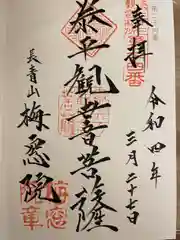 奉拝
令和四年
三月二十七日
泰平觀世音菩薩
長青山
梅窓院